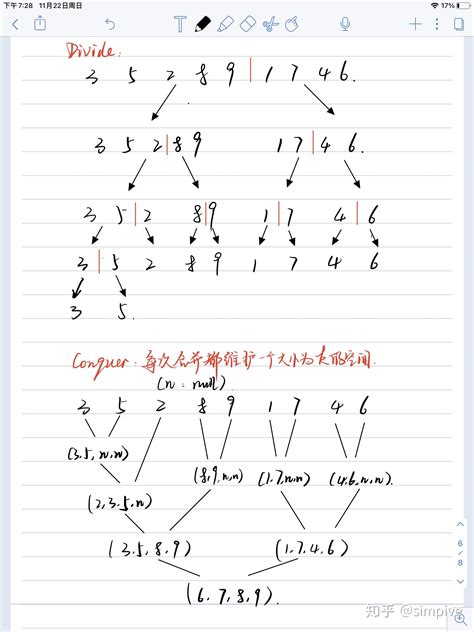 下午7:28 11月22日周日 17%
Divide:
3 5 2 8 9 | 1 7 4 6.
3 5 2 | 8 9 1 7 | 4 6.
3 5 | 2 8 | 9 1 | 7 4 | 6
3 | 5 2 8 9 1 7 4 6
3 5.
Conquer: 每次合并都维护一个大小为k的空间.
(n: null)
3 5 2 8 9 1 7 4 6
(3,5,n,n) (8,9,n,n) (1,7,n,n) (4,6,n,n).
(2,3,5,n)
(3,5,8,9) (1,7,4,6)
(6,7,8,9).
6/8
知乎 @simpive